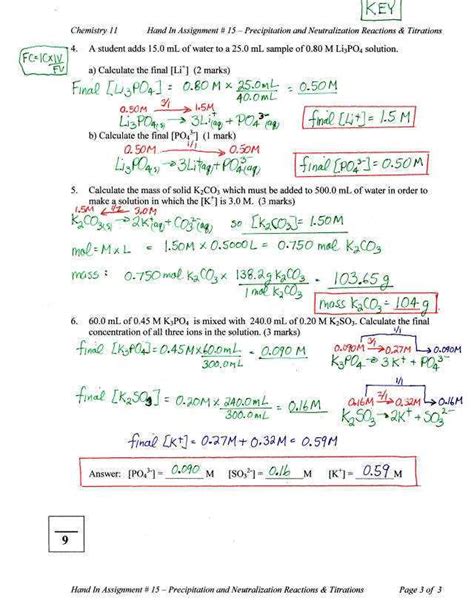 KEY
Chemistry 11 Hand In Assignment # 15 – Precipitation and Neutralization Reactions & Titrations
FC=ICxIV
FV
4. A student adds 15.0 mL of water to a 25.0 mL sample of 0.80 M Li₃PO₄ solution.
a) Calculate the final [Li⁺] (2 marks)
Final [Li₃PO₄] = 0.80 M x 25.0mL = 0.50M
40.0mL
0.50M 3/1 → 1.5M
Li₃PO₄(s) → 3Li⁺(aq) + PO₄³⁻(aq)
final [Li+] = 1.5 M
b) Calculate the final [PO₄³⁻] (1 mark)
0.50M 1/1 → 0.50M
Li₃PO₄(s) → 3Li⁺(aq) + PO₄³⁻(aq)
final [PO₄³⁻] = 0.50 M
5. Calculate the mass of solid K₂CO₃ which must be added to 500.0 mL of water in order to
make a solution in which the [K⁺] is 3.0 M. (3 marks)
1.5M ← 1/2 3.0M
K₂CO₃(s) → 2K⁺(aq) + CO₃²⁻(aq) so [K₂CO₃] = 1.50M
mol = M x L = 1.50M x 0.5000L = 0.750 mol K₂CO₃
mass: 0.750 mol K₂CO₃ x 138.2g K₂CO₃ = 103.65g
1 mol K₂CO₃
mass K₂CO₃ = 104 g
6. 60.0 mL of 0.45 M K₃PO₄ is mixed with 240.0 mL of 0.20 M K₂SO₃. Calculate the final
concentration of all three ions in the solution. (3 marks)
1/1
final [K₃PO₄] = 0.45M x 60.0mL = 0.090 M
300.0mL
0.090M 3/1 → 0.27M → 0.090M
K₃PO₄ → 3K⁺ + PO₄³⁻
1/1
final [K₂SO₃] = 0.20M x 240.0mL = 0.16M
300.0mL
0.16M 2/1 → 0.32M → 0.16M
K₂SO₃ → 2K⁺ + SO₃²⁻
final [K⁺] = 0.27M + 0.32M = 0.59M
Answer: [PO₄³⁻] = 0.090 M [SO₃²⁻] = 0.16 M [K⁺] = 0.59 M
9
Hand In Assignment # 15 – Precipitation and Neutralization Reactions & Titrations Page 3 of 3